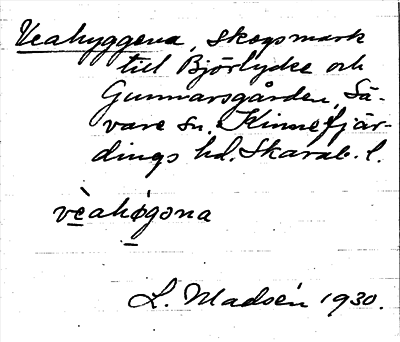 Veahyggena, skogsmark
till Björlycke och
Gunnarsgården, Sä-
vare sn. Kinnefjär-
dings hd. Skarab. l.
vèahøgəna
L. Madsén 1930.